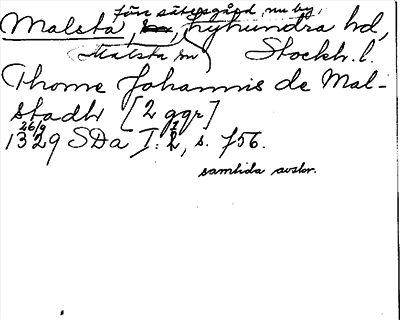 förr sätesgård, nu by,
Malsta, Lyhundra hd,
(Malsta sn) Stockh. l.
Thome Johannis de Mal-
stadh [2 ggr]
26/9
1329 SDa I: 2, s. 756.
samtida avskr.